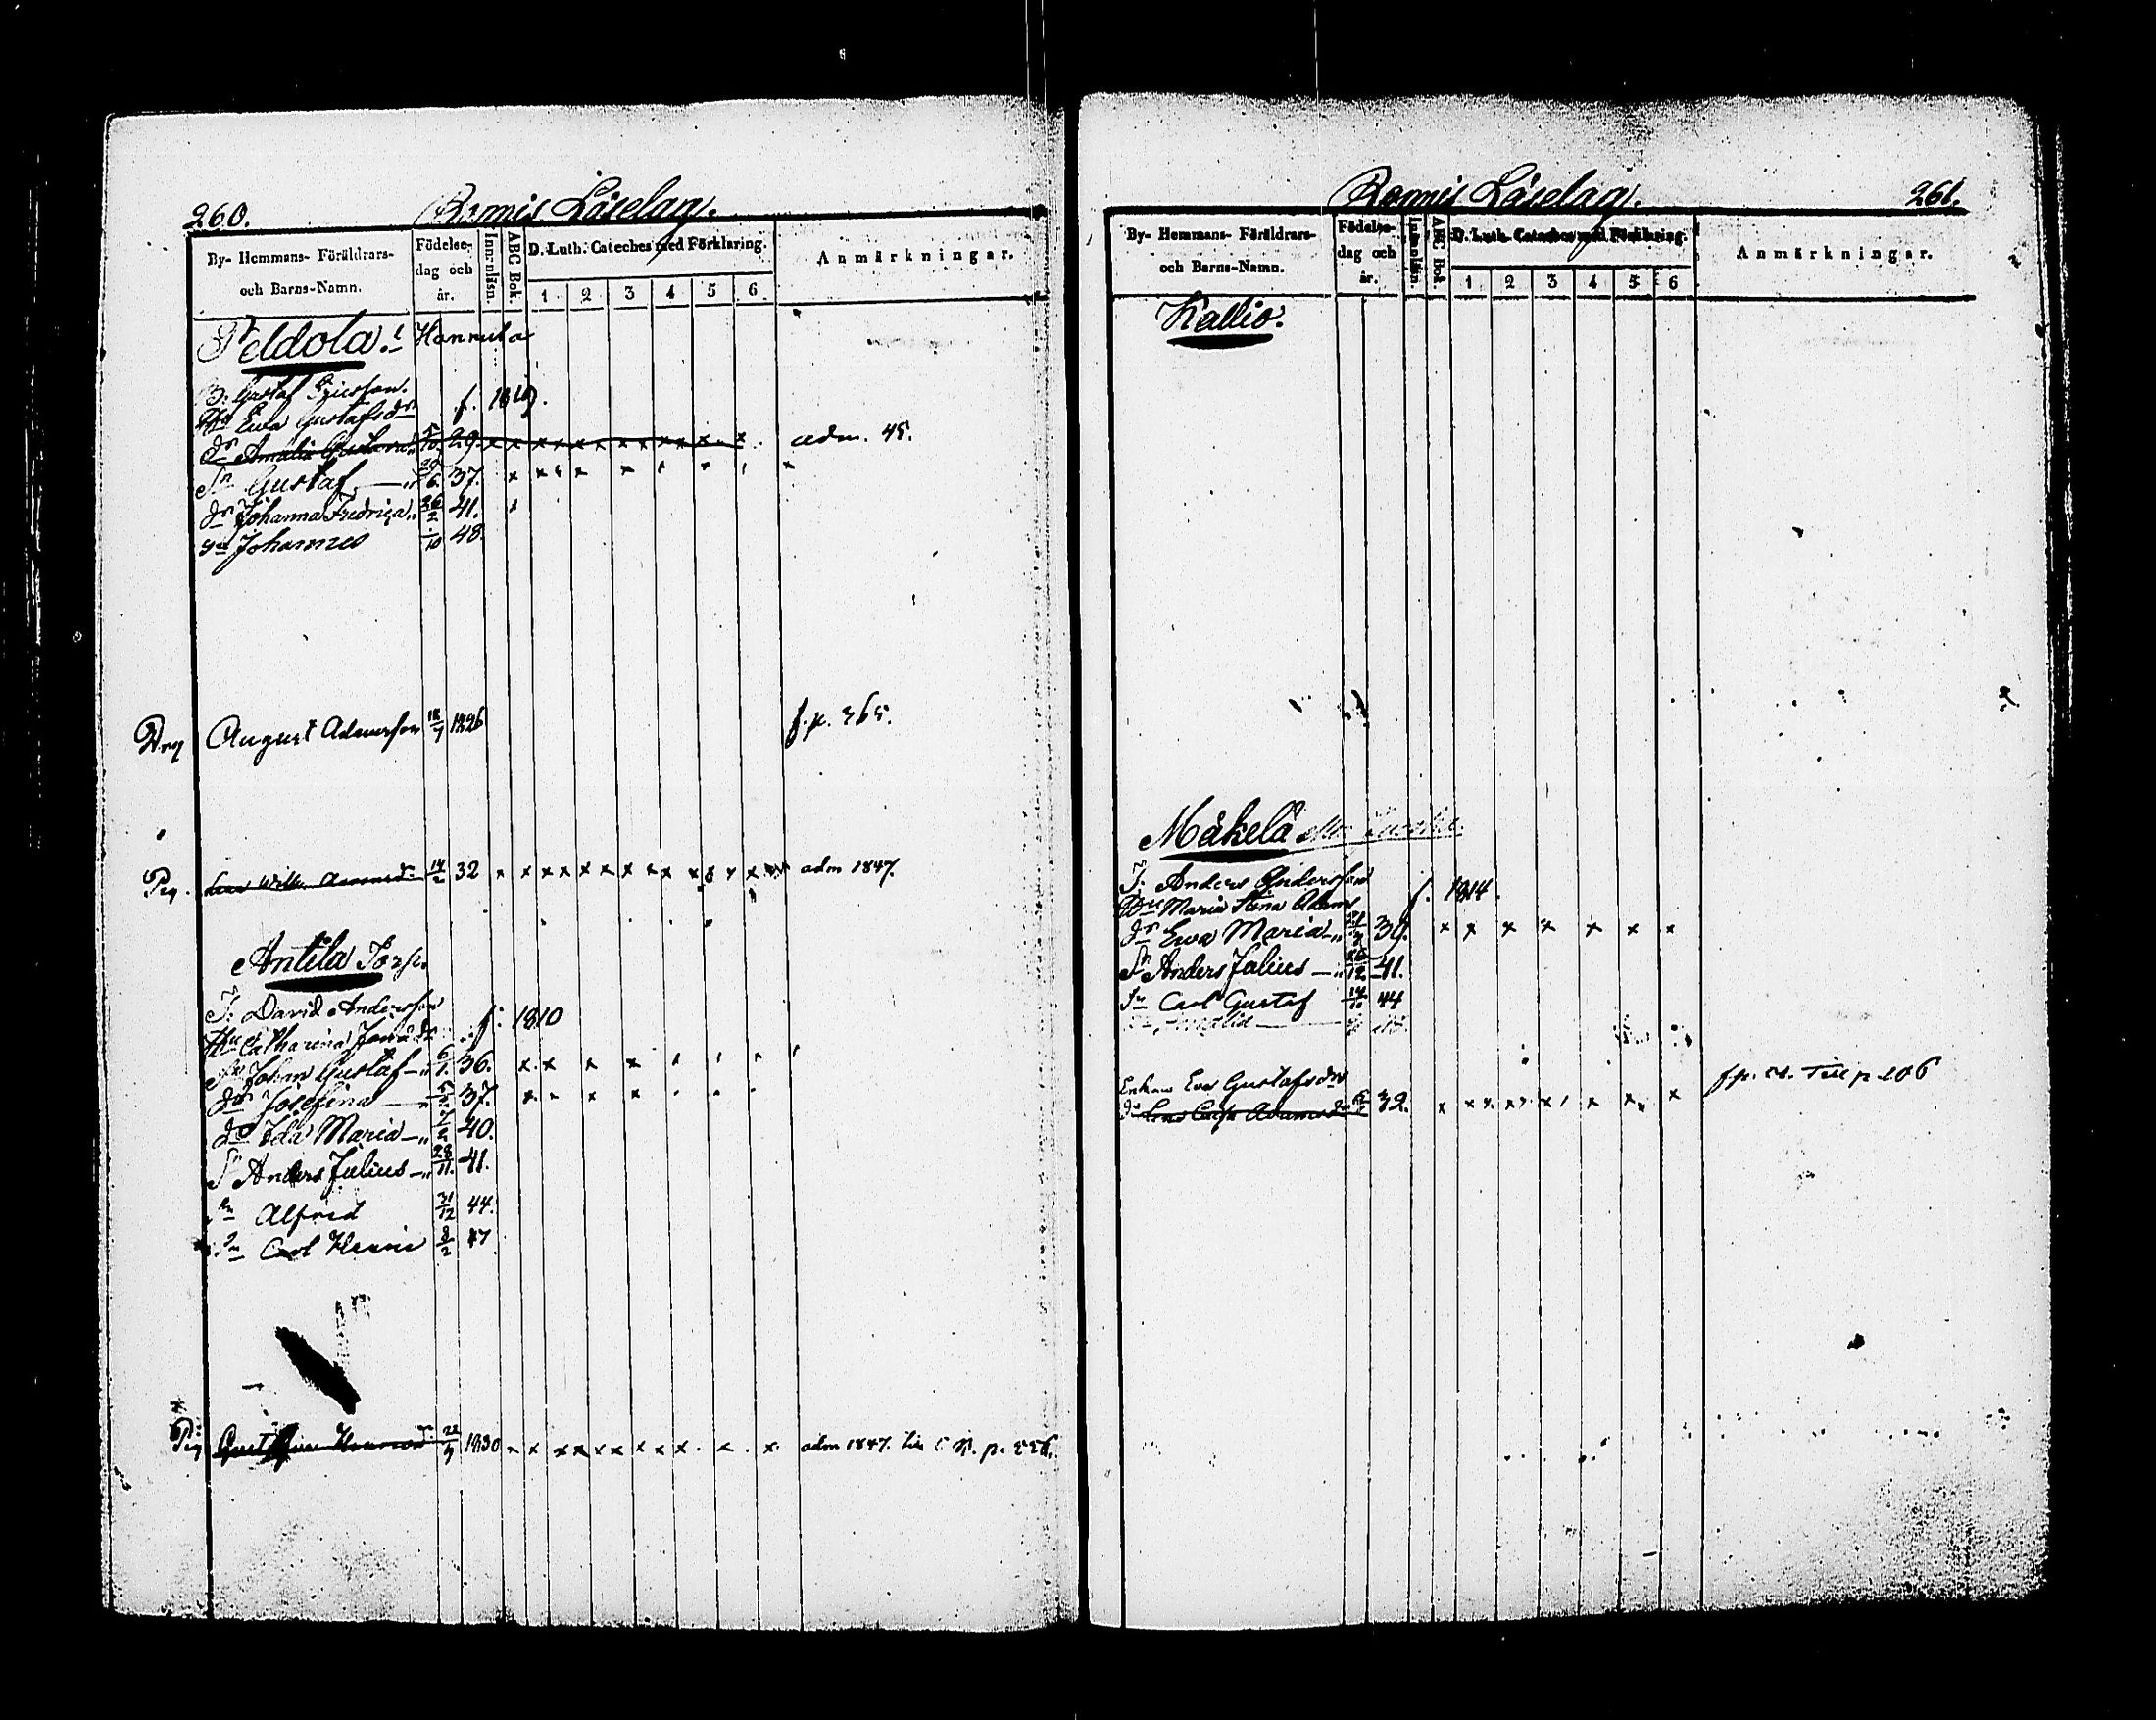 260.
Ronnis Läselag.
By- Hemmans- Föräldrars- och Barns-Namn.
Födelse- dag och år.
Innanläsn.
ABC Bok.
D. Luth. Cateches med Förklaring.
1 2 3 4 5 6
Anmärkningar.
Peldola. Hannula
B. Gustaf Ericsson.
Hu Ewa Gustafsdr f. 1819.
dr Amalia 5/10 29. x x x x x x x x x x x x adm. 45.
Sn Gustaf —„ 29/6. 37. x x x x x
dr Johanna Fredrica „ 26/2 41.
Sn Johannes /10 48.
Drg August Adamsson 18/7 1826 f. p. 365.
Pig. 14/2 32 x x x x x x x x x x x adm 1847.
Antila Torp.
T. David Andersson
Hu Catharina f: 1810
Sn Johan Gustaf —„ 6/1. 36. x x x x
dr Josefina —„ 37. x x x
dr Ida Maria —„ 40.
Sn Anders Julius —„ 28/11. 41.
Sn Alfred 31/12 44.
Sn Carl 8/2 47
Pig 22/7 1830 x x x x x x x x x x adm 1847. p. 226.
Ronnis Läselag.
261.
By- Hemmans- Föräldrars- och Barns-Namn.
Födelse- dag och år.
Innanläsn.
ABC Bok.
D. Luth. Cateches med Förklaring.
1 2 3 4 5 6
Anmärkningar.
Kallio.
Mäkelä
T. Anders Andersson
Hu Maria Stina Adams f. 1814.
dr Ewa Maria —„ 39. x x x x x x x
Sn Anders Julius —„ 26/12 41.
Sn Carl Gustaf 14/10 44
Enkan Eva Gustafsdr f. p. Till p 206
dr Lena Adamsdr 32. x x x x x x x x